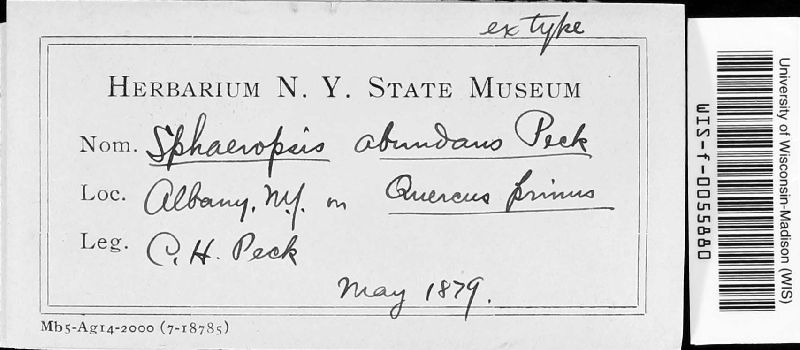 ex type
HERBARIUM N. Y. STATE MUSEUM
Nom. Sphaeropsis abundans Peck
Loc. Albany, N.Y. on Quercus prinus
Leg. C. H. Peck
May 1879.
Mb5-Ag14-2000 (7-18785)
University of Wisconsin-Madison (WIS)
WIS-f-0055880